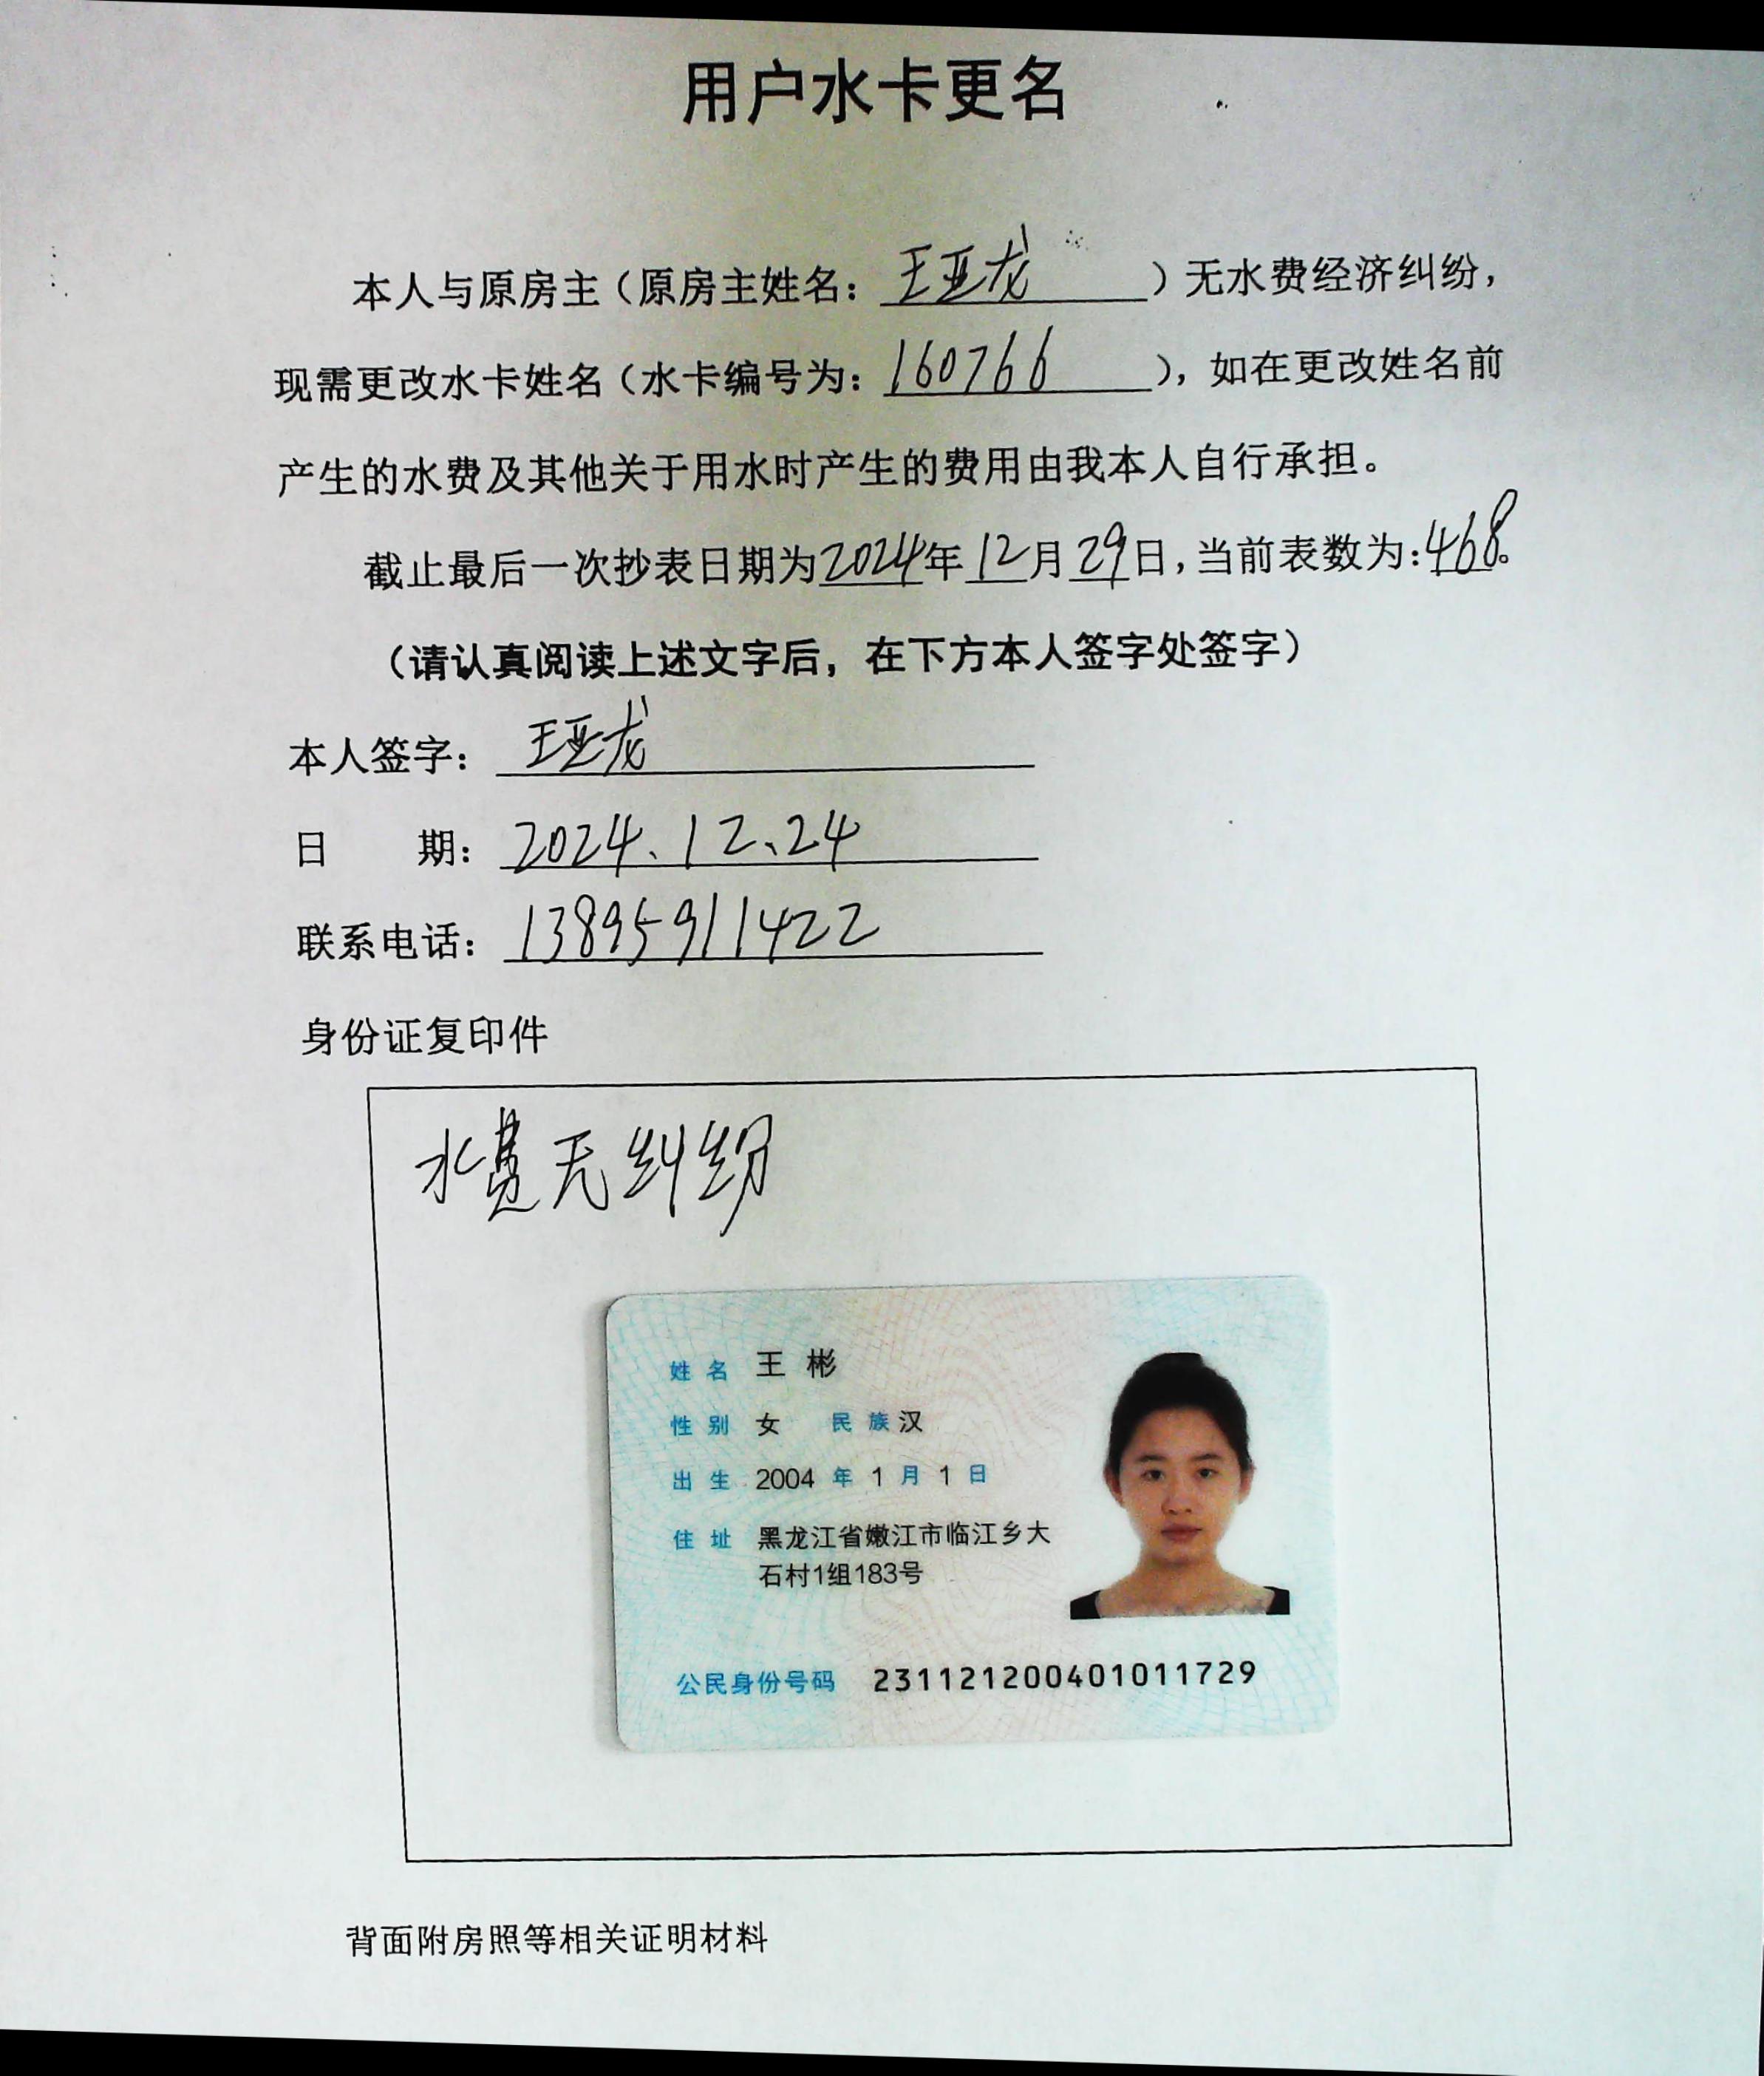 用户水卡更名
本人与原房主（原房主姓名：王亚龙）无水费经济纠纷，
现需更改水卡姓名（水卡编号为：160766），如在更改姓名前
产生的水费及其他关于用水时产生的费用由我本人自行承担。
截止最后一次抄表日期为2024年12月29日，当前表数为：468。
（请认真阅读上述文字后，在下方本人签字处签字）
本人签字：王亚龙
日 期：2024、12、24
联系电话：13895911422
身份证复印件
水费无纠纷
姓名 王彬
性别 女 民族 汉
出生 2004 年 1 月 1 日
住址 黑龙江省嫩江市临江乡大
石村1组183号
公民身份号码 231121200401011729
背面附房照等相关证明材料